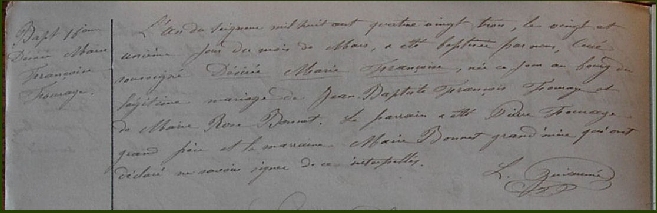 Bapt. 16ème
Désirée Marie
Françoise
Fromage.
L'an du seigneur mil huit cent quatre vingt trois, le vingt et
unième jour du mois de Mars, a été baptisée par nous, Curé
soussigné Désirée Marie Françoise, née ce jour au bourg du
légitime mariage de Jean Baptiste François Fromage et
de Marie Rose Bonnet. Le parrain a été Pierre Fromage
grand père et la marraine Marie Bonnet grand'mère qui ont
déclaré ne savoir signer de ce interpellés.
L.